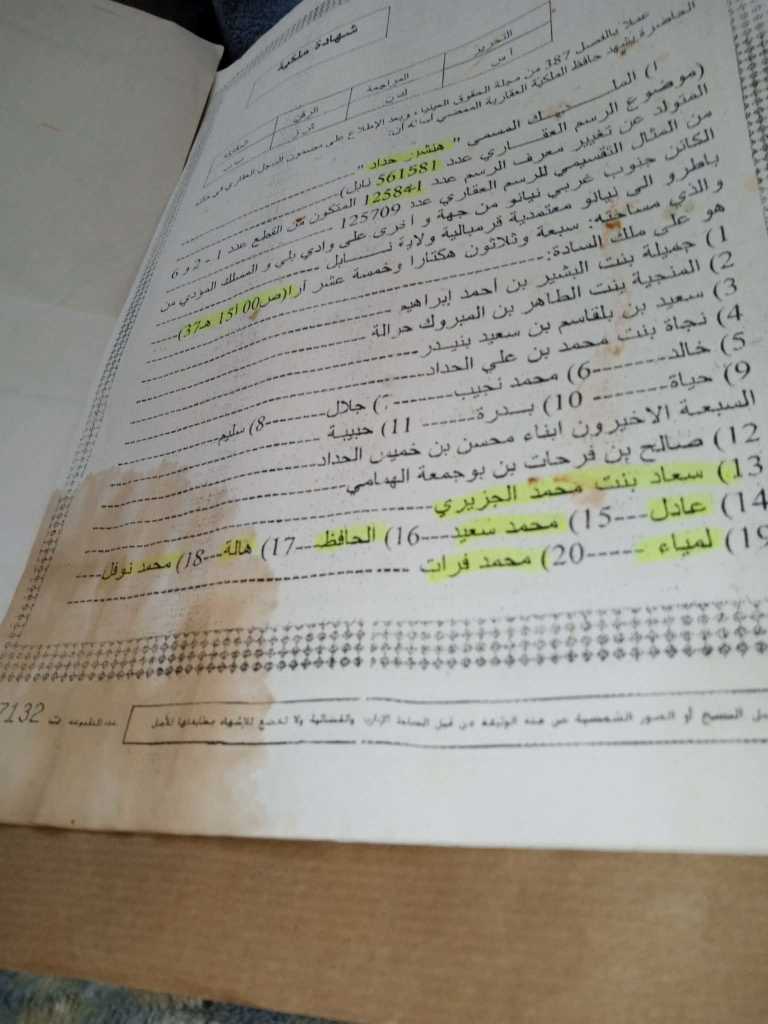 شهادة ملكية
التحرير
المراجعة
الرقن
أ س
عملا بالفصل 387 من مجلة الحقوق العينية، وبعد الإطلاع على مضمون السجل العقاري في حالته
الحاضرة يشهد حافظ الملكية العقارية الممضي أسفله أن:
1) الملــــــيك المسمى " هنشير حداد "
(موضوع الرسم العقــاري عدد 561581 نابل)
المتولد عن تغيير معرف الرسم عدد 125841 المتكون من القطع عدد 1 - 2 و 6
من المثال التقسيمي للرسم العقاري عدد 125709
الكائن جنوب غربي نيانو من جهة و اخرى على وادي بلي و المسلك المؤدي من
باطرو الى نيانو معتمدية قرمبالية ولاية نــابل
و الذي مساحته: سبعة وثلاثون هكتارا وخمسة عشر آرا(ص00 آ15 هـ37)
هو على ملك السادة:
1) جميلة بنت البشير بن أحمد إبراهيم
2) المنجية بنت الطاهر بن المبروك حرالة
3) سعيد بن بلقاسم بن سعيد بنيــدر
4) نجاة بنت محمد بن علي الحداد
5) خالد-------6) محمد نجيب------7) جلال-------8) سليم
9) حياة------- 10) بــدرة------ 11) حبيبة
السبعة الاخيرون ابناء محسن بن خميس الحداد
12) صالح بن فرحات بن بوجمعة الهمامي
13) سعاد بنت محمد الجزيري
14) عادل---15) محمد سعيد---16) الحافظ---17) هالة---18) محمد نوفل
19) لمياء -----20) محمد فرات
المسح أو الصور الشمسية من هذه الوثيقة من قبل المصالح الإدارية والقضائية ولا تخضع للإشهاد بمطابقتها للأصل
7132 ت